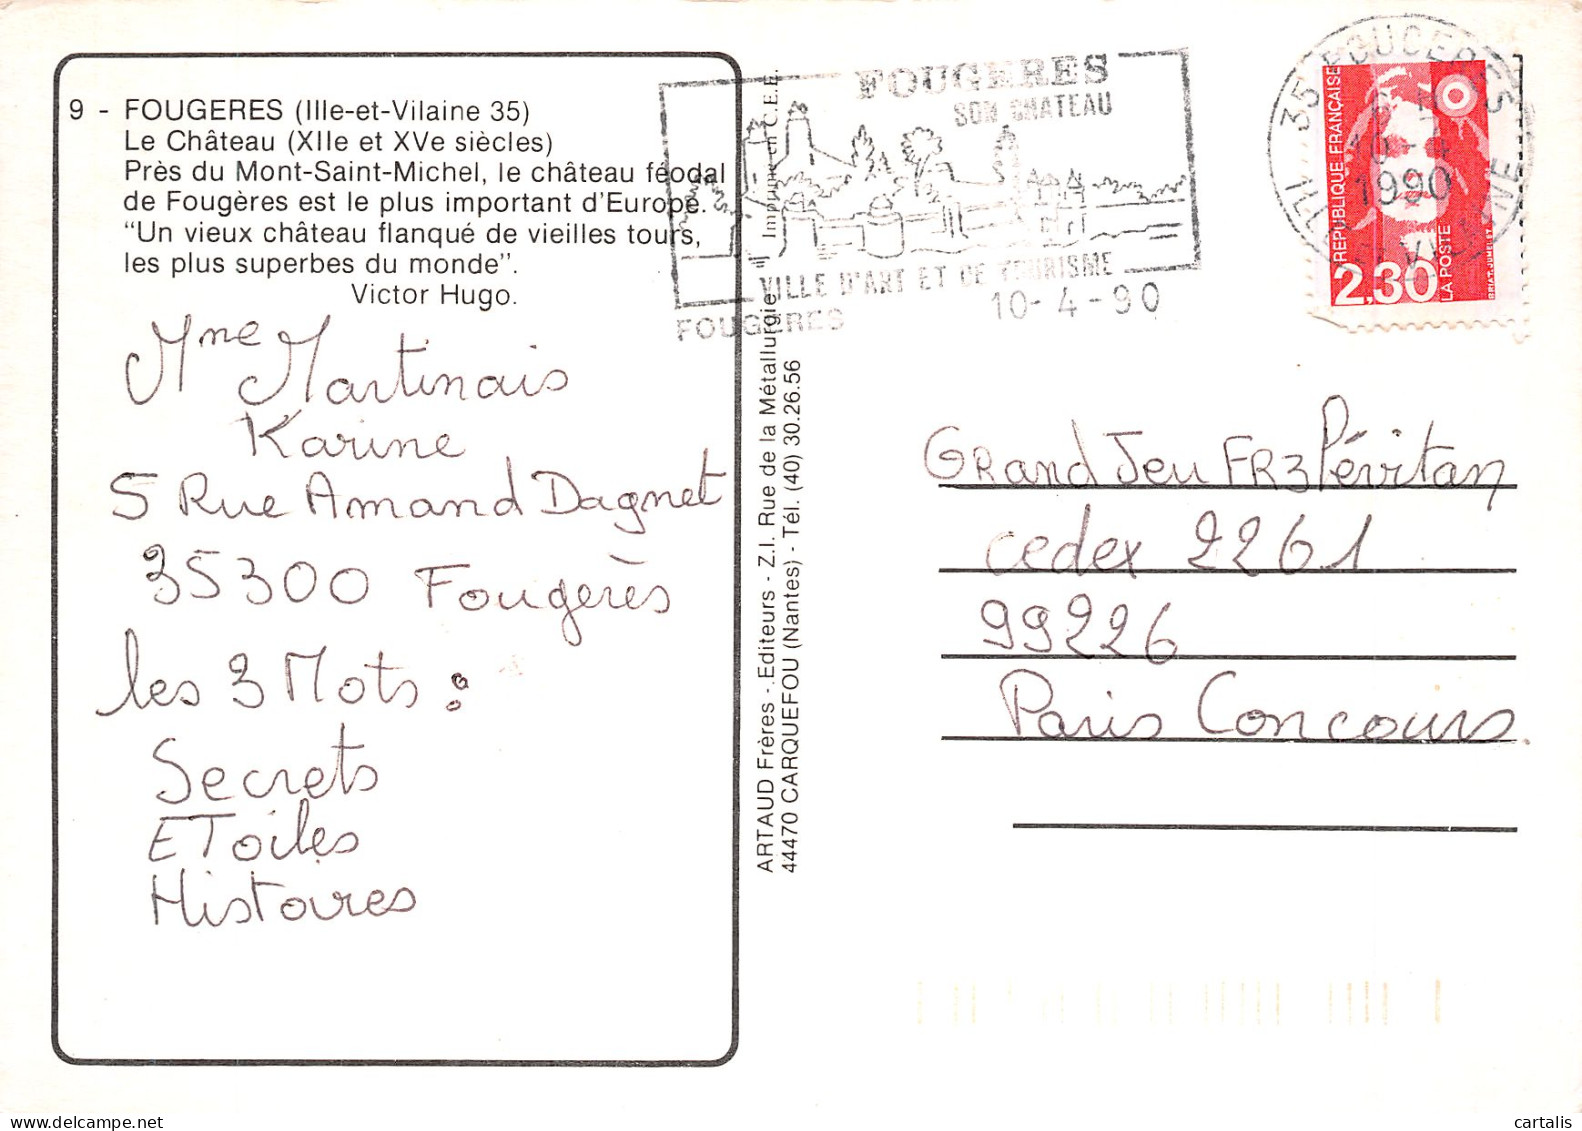 9 - FOUGERES (Ille-et-Vilaine 35)
Le Château (XIIe et XVe siècles)
Près du Mont-Saint-Michel, le château féodal
de Fougères est le plus important d'Europe.
"Un vieux château flanqué de vieilles tours,
les plus superbes du monde".
Victor Hugo.
Mme Martinais
Karine
5 Rue Amand Dagnet
35300 Fougerès
les 3 Mots :
Secrets
EToiles
Histoires
ARTAUD Frères - Editeurs - Z.I. Rue de la Métallurgie Imprimé en C.E.E.
44470 CARQUEFOU (Nantes) - Tél. (40) 30.26.56
FOUGERES
SON CHATEAU
VILLE D'ART ET DE TOURISME
FOUGERES
10-4-90
35 FOUGERES
10-4
1990
ILLE ET VILAINE
REPUBLIQUE FRANÇAISE
2,30
LA POSTE
BRIAT. JUMELET
GRand Jeu FR3 Pévitan
cedex 2261
99226
Paris Concours
cartalis